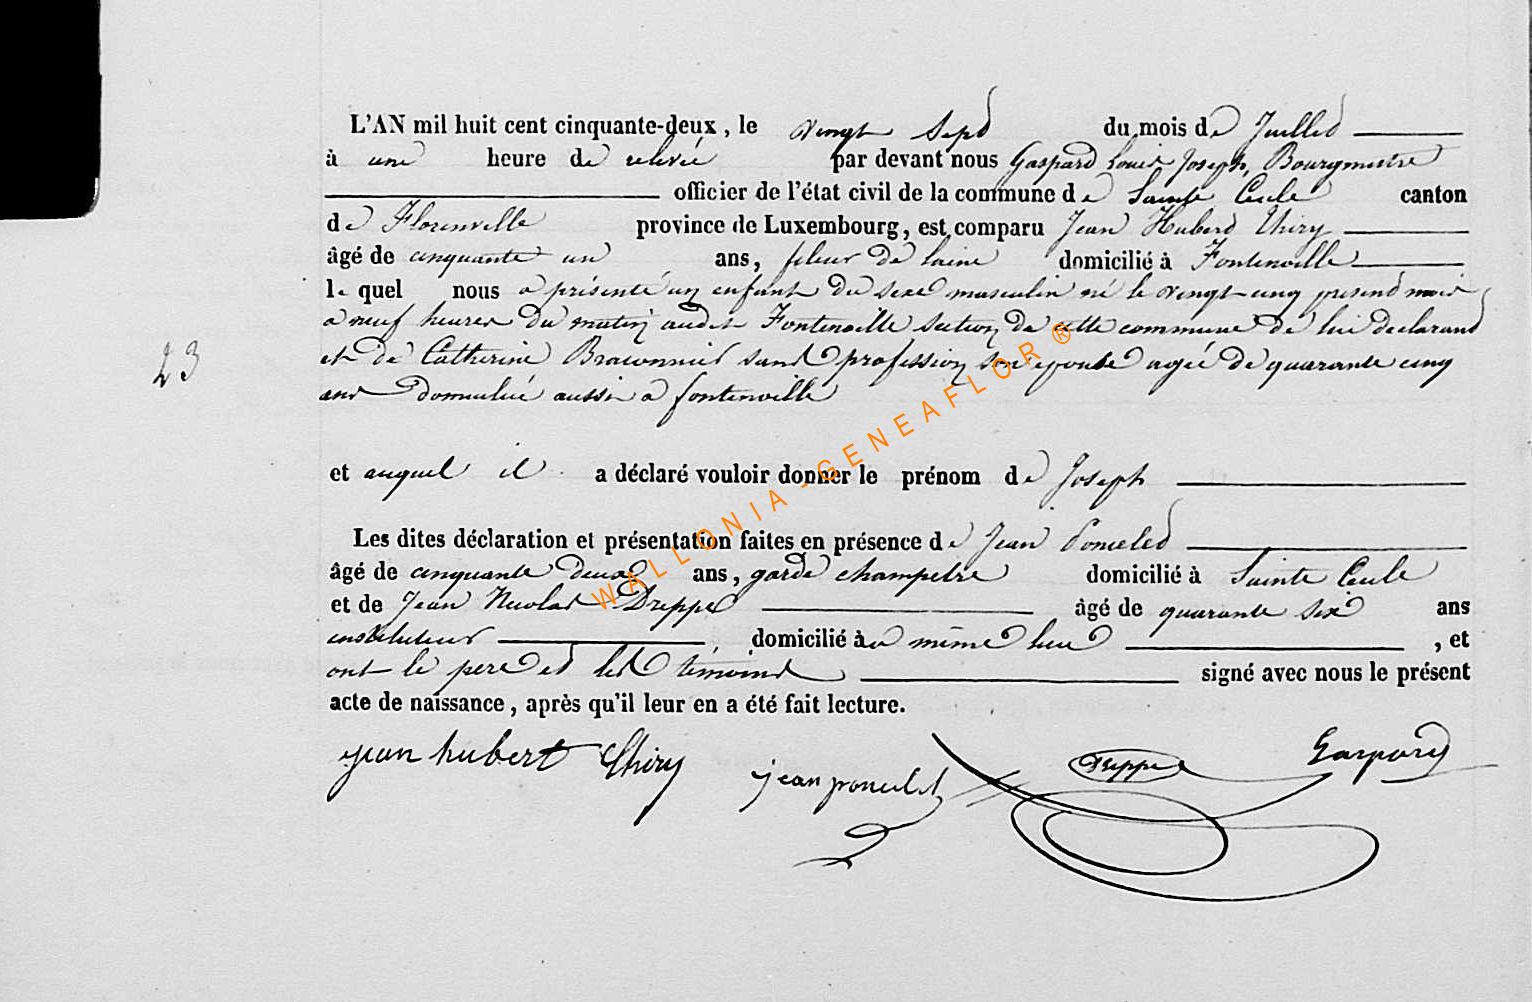 L'AN mil huit cent cinquante-deux, le vingt sept du mois de Juillet
à une heure de relevée par devant nous Gaspard Louis Joseph, Bourgmestre
officier de l'état civil de la commune de Sainte Cecile canton
de Florenville province de Luxembourg, est comparu Jean Hubert Thiry
âgé de cinquante un ans, fileur de laine domicilié à Fontenoille
le quel nous a présenté un enfant du sexe masculin né le vingt cinq présent mois
a neuf heures du matin audit Fontenoille section de cette commune de lui declarant
et de Catherine Braconnier sans profession son epouse agée de quarante cinq
ans domiciliée aussi a fontenoille
23
et auquel il a déclaré vouloir donner le prénom de Joseph
Les dites déclaration et présentation faites en présence de Jean Poncelet
âgé de cinquante deux ans, garde champetre domicilié à Sainte Cecile
et de Jean Nicolas Dreppe âgé de quarante six ans
instituteur domicilié à a même lieu , et
ont le pere et les témoins signé avec nous le présent
acte de naissance, après qu'il leur en a été fait lecture.
jean hubert Thiry jean poncelet Dreppe Gaspard
WALLONIA-GENEAFLOR ®